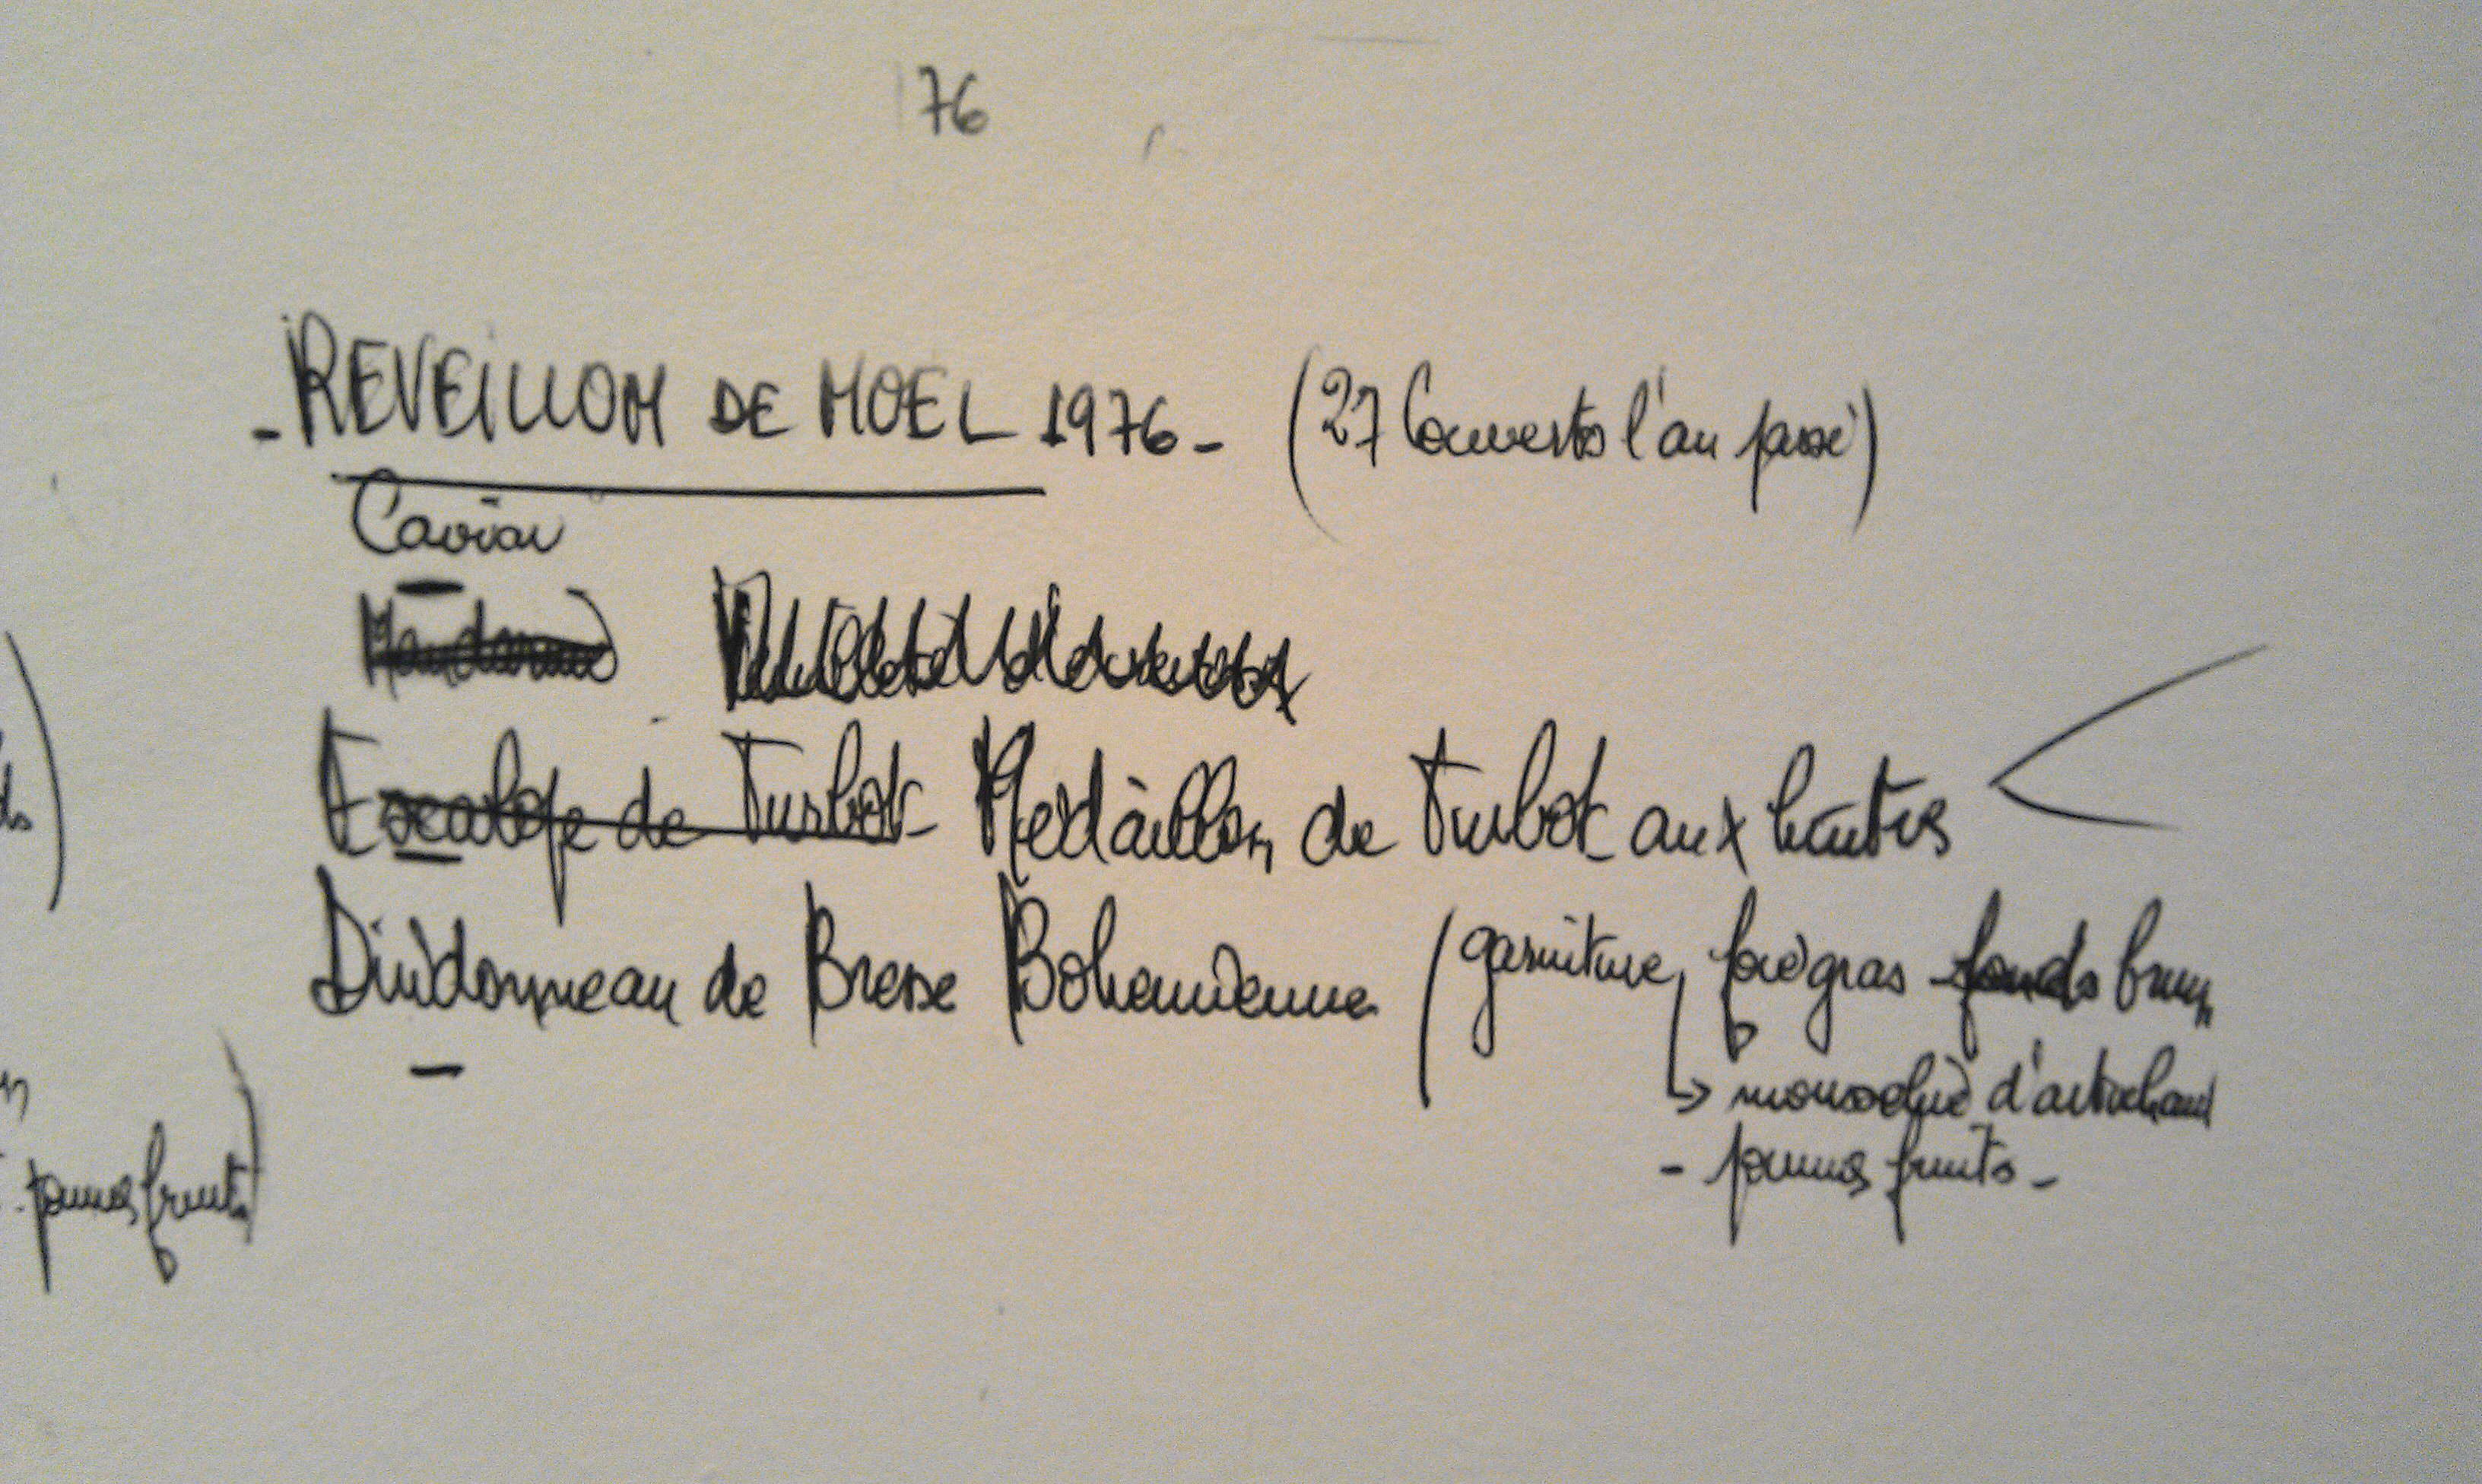 76
- REVEILLON DE NOEL 1976 - (27 Couverts l'an passé)
Caviar
Escalope de Turbot Médaillon de Turbot aux huîtres
Dindonneau de Bresse Bohemienne (garniture, foie gras fonds brun
→ d'artichaut
- pommes fruits -
pommes fruits)